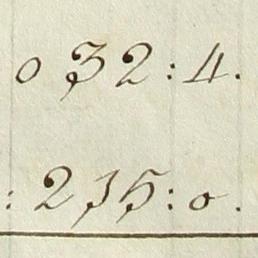 o 32:4.
:235:o.